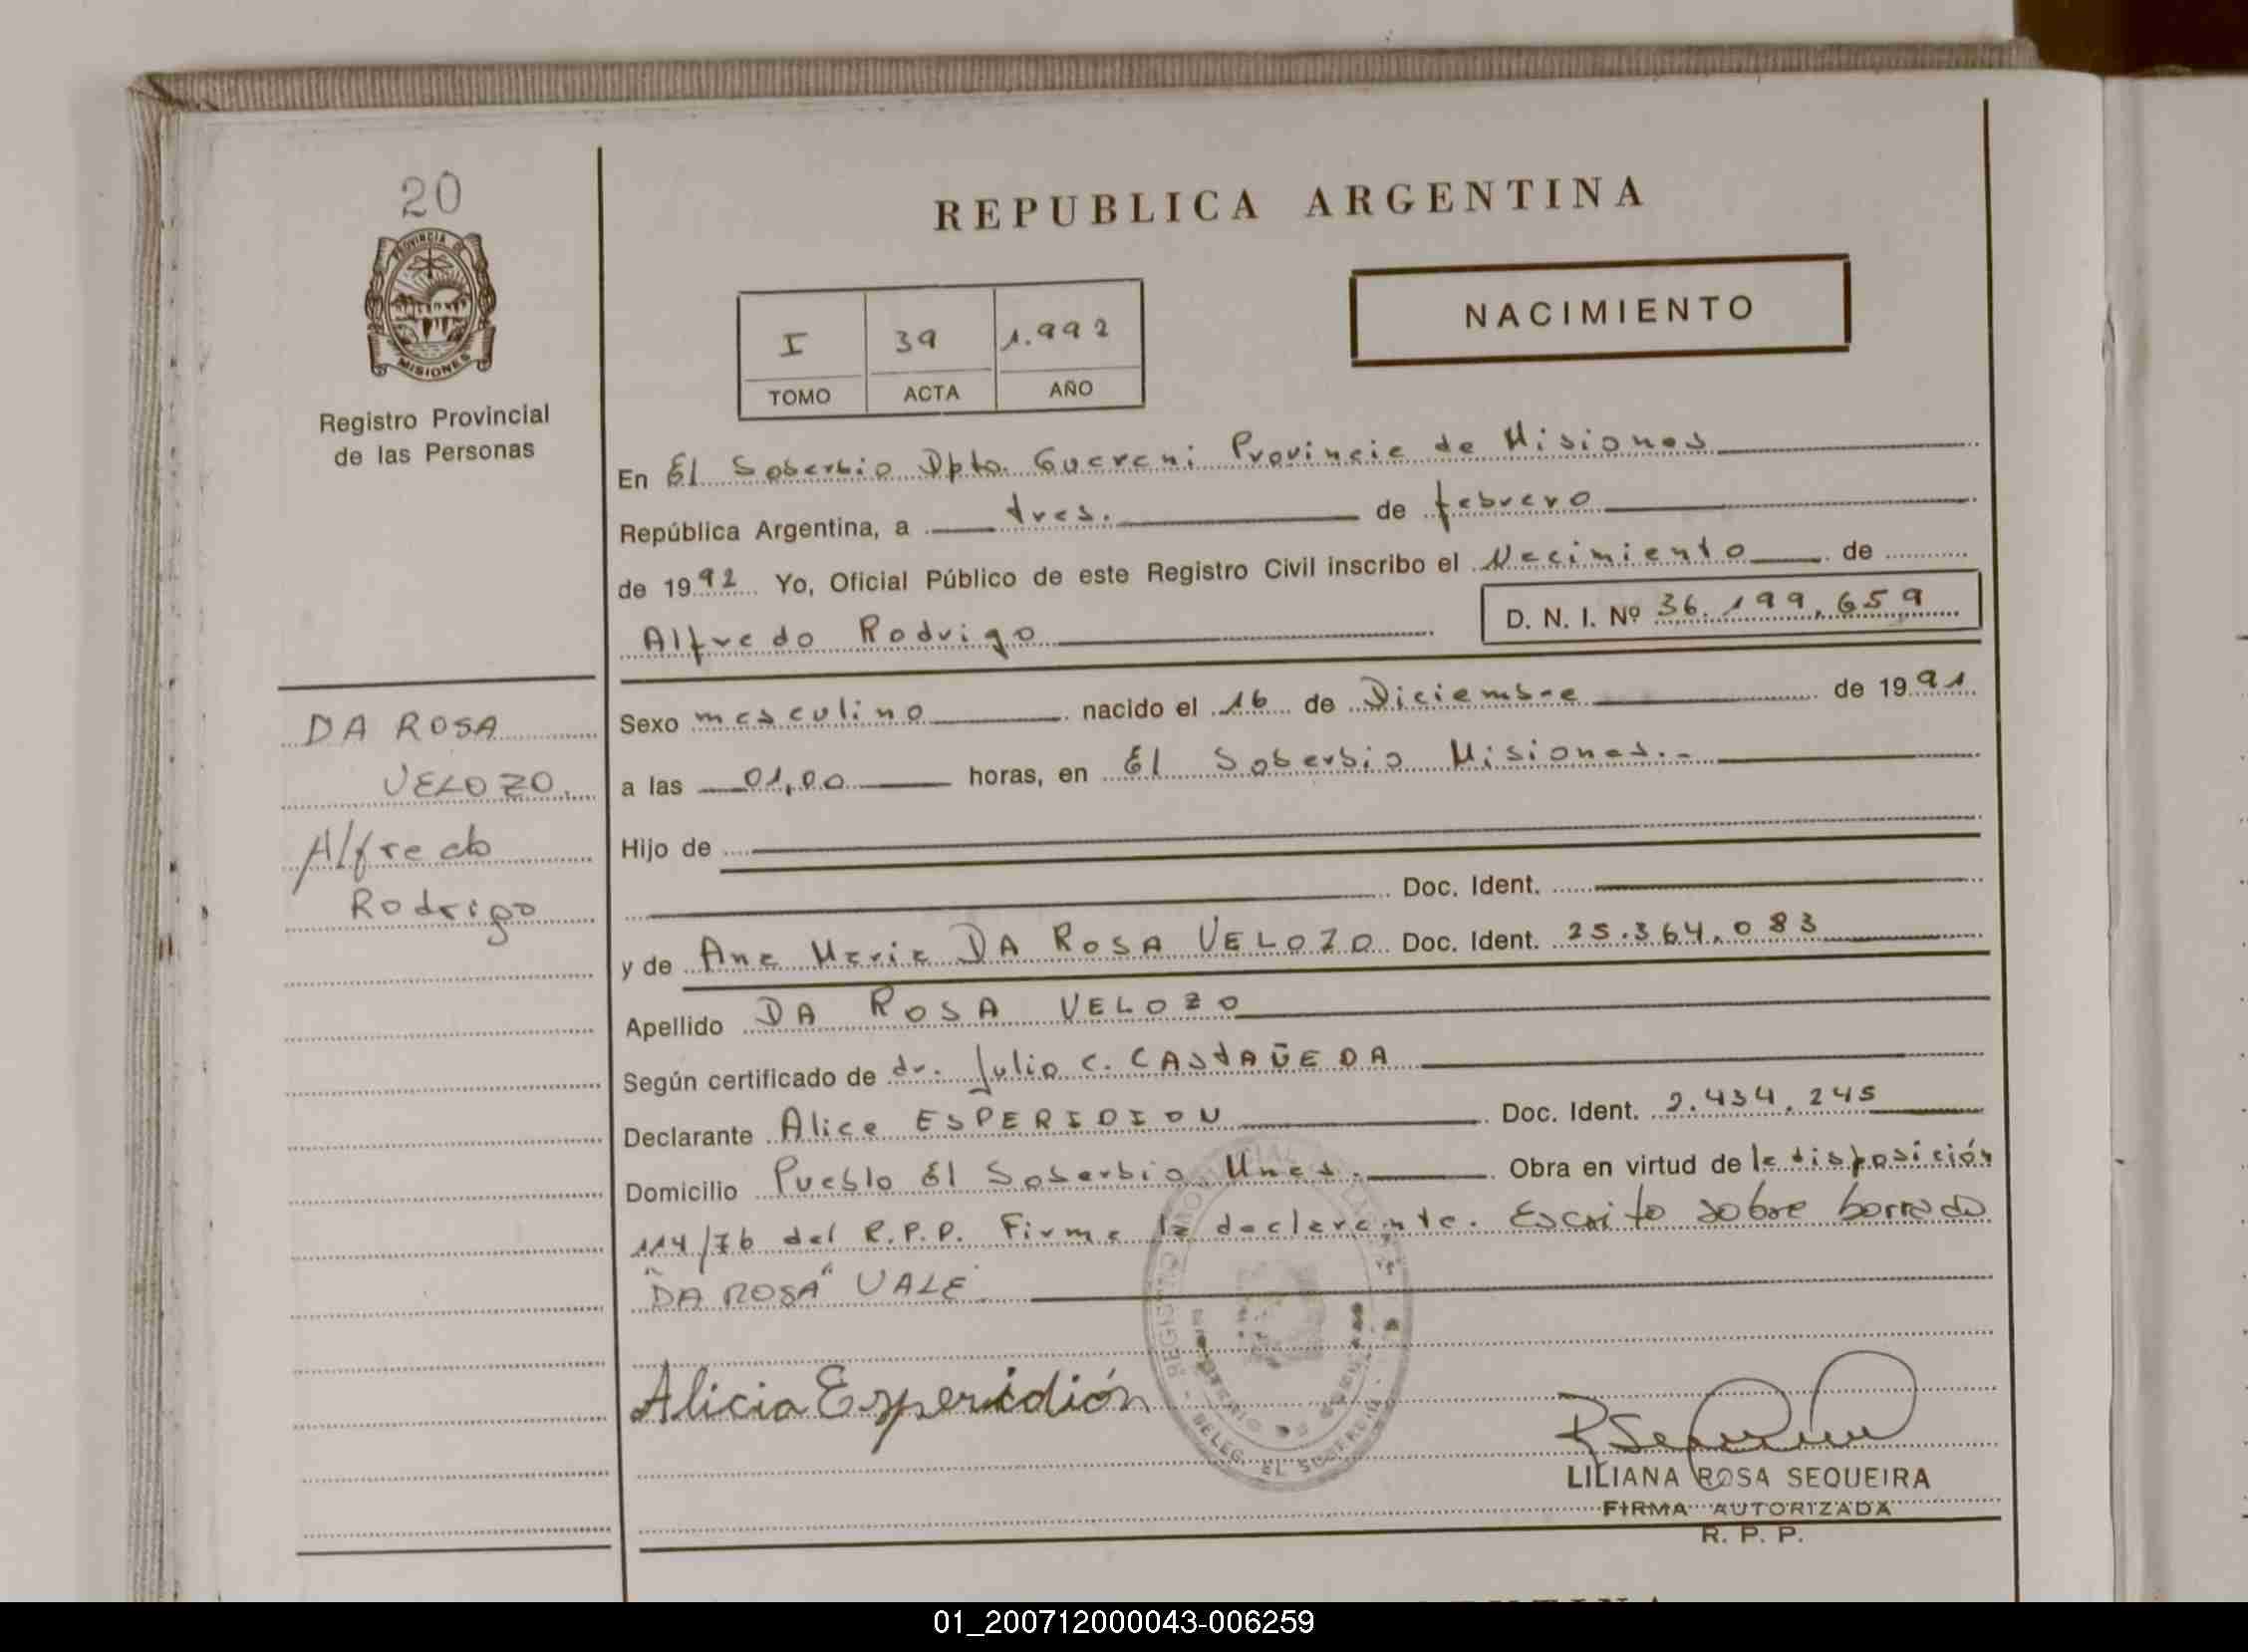 20
PROVINCIA DE
MISIONES
Registro Provincial
de las Personas
REPUBLICA ARGENTINA
I 39 1.992
TOMO ACTA AÑO
NACIMIENTO
En El Soberbio Dpto. Guarani Provincia de Misiones
República Argentina, a tres. de febrero
de 1992 Yo, Oficial Público de este Registro Civil inscribo el Nacimiento de
Alfredo Rodrigo D. N. I. Nº 36.199.659
DA ROSA
VELOZO.
Alfredo
Rodrigo
Sexo masculino nacido el 16 de Diciembre de 1991
a las 01,00 horas, en El Soberbio Misiones.-
Hijo de
Doc. Ident.
y de Ana Maria DA ROSA VELOZO Doc. Ident. 25.364.083
Apellido DA ROSA VELOZO
Según certificado de dr. Julio C. CASTAÑEDA
Declarante Alice ESPERIDION Doc. Ident. 2.434.245
Domicilio Pueblo El Soberbio Mnes. Obra en virtud de la disposición
114/76 del R.P.P. Firma la declarante. Escrito sobre borrado
"DA ROSA" VALE
Alicia Esperidión
DELEG. EL SOBERBIO
LILIANA ROSA SEQUEIRA
FIRMA AUTORIZADA
R. P. P.
01_200712000043-006259